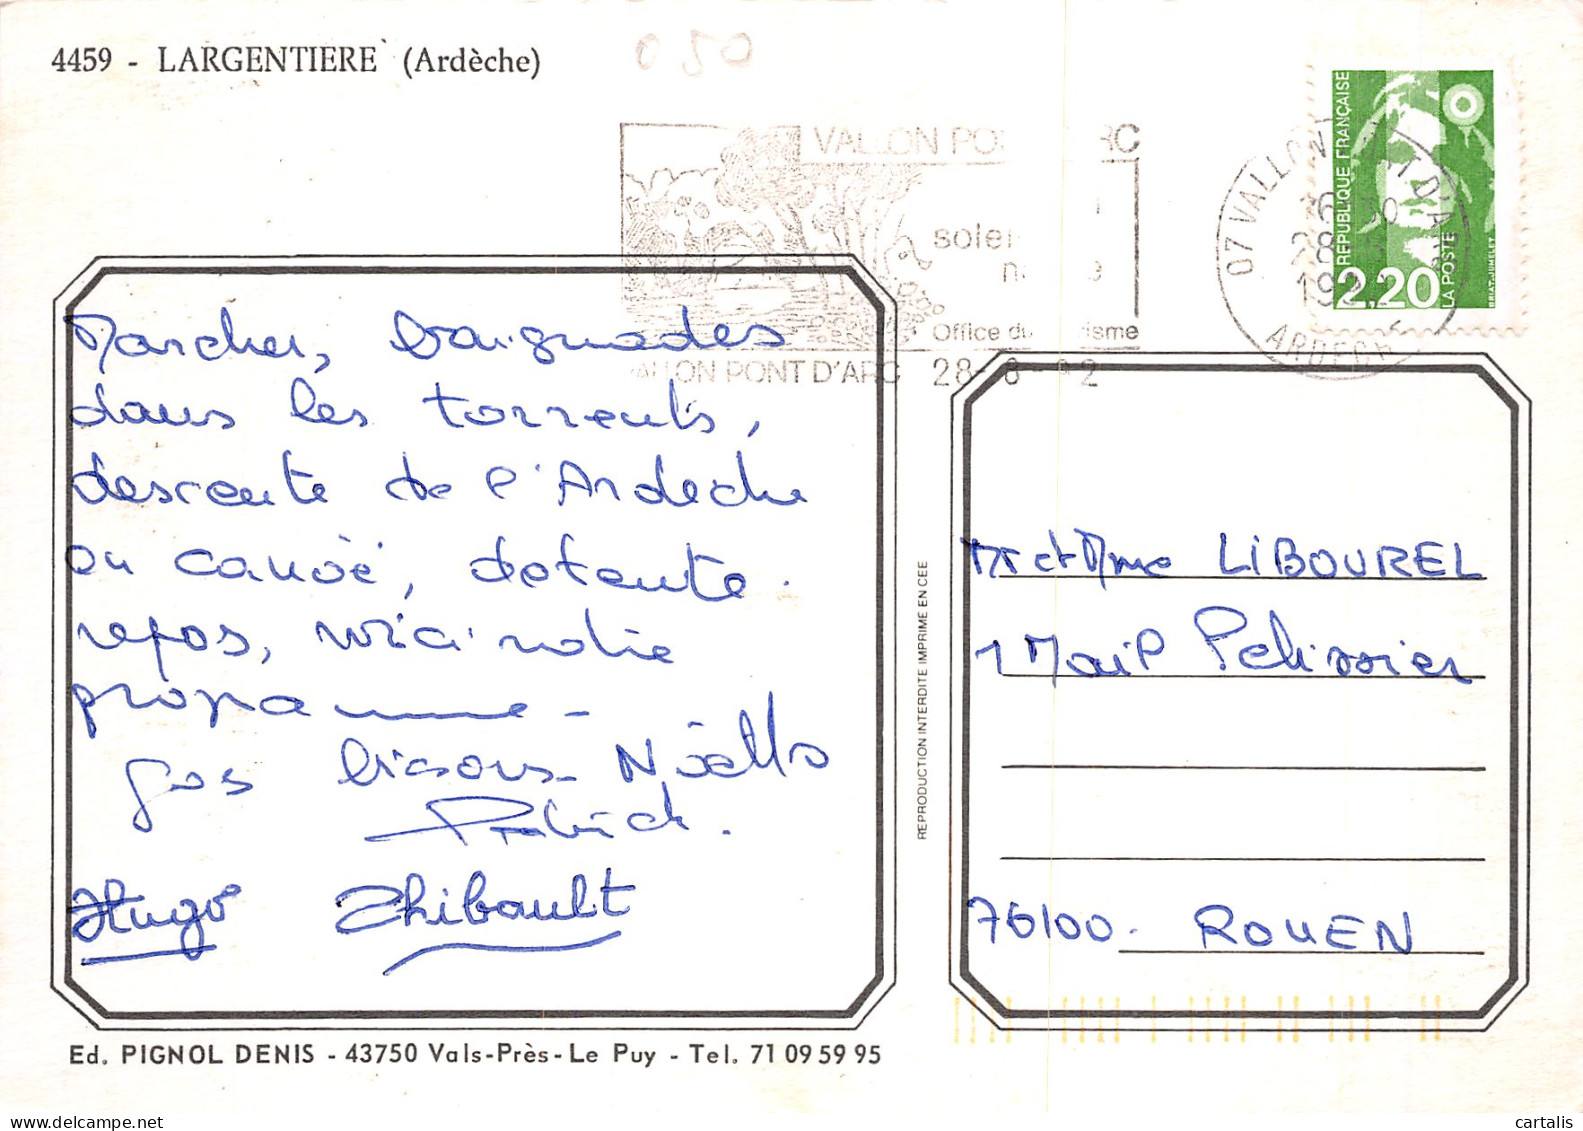 4459 - LARGENTIERE (Ardèche)
VALLON PO RC
solei
Office du isme
VALLON PONT D'ARC 28-8-92
07 VALLON
28
ARDECHE
REPUBLIQUE FRANÇAISE
2,20
LA POSTE
BRIAT-JUMELET
Marcher, baignades
dans les torrents,
descente de l'Ardeche
en canoë, detente.
repos, voici notre
programme -
Gos bisous - Noëlle
Patrick.
Hugo Thibault
REPRODUCTION INTERDITE IMPRIME EN CEE
M et Mme LIBOUREL
1 Mail Pelissier
76100. ROUEN
Ed. PIGNOL DENIS - 43750 Vals-Près-Le Puy - Tel. 71 09 59 95
cartalis